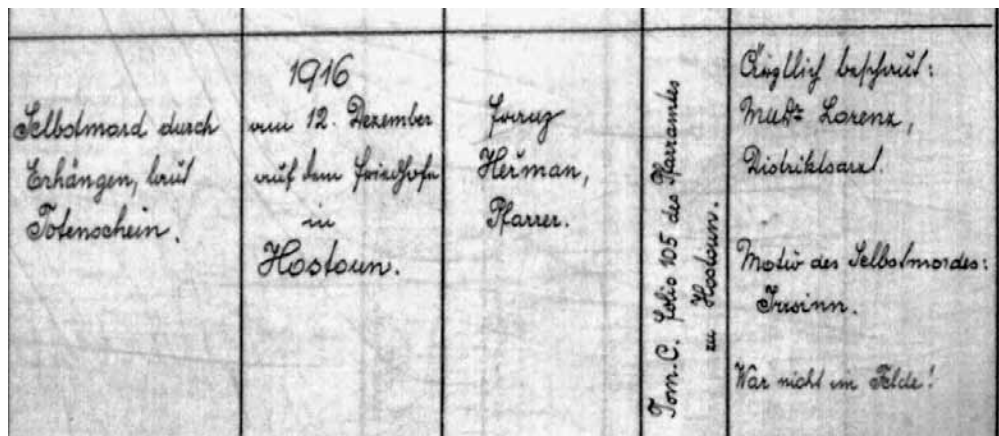 Selbstmord durch
Erhängen, laut
Totenschein.
1916
am 12. Dezember
auf dem Friedhofe
in
Hostoun.
Franz
Heřman,
Pfarrer.
Tom. C. folio 105 des Pfarramtes
zu Hostoun.
Ärztlich beschaut:
MUDr Lorenz,
Distriktsarzt.
Motiv des Selbstmordes:
Irrsinn.
War nicht im Felde!